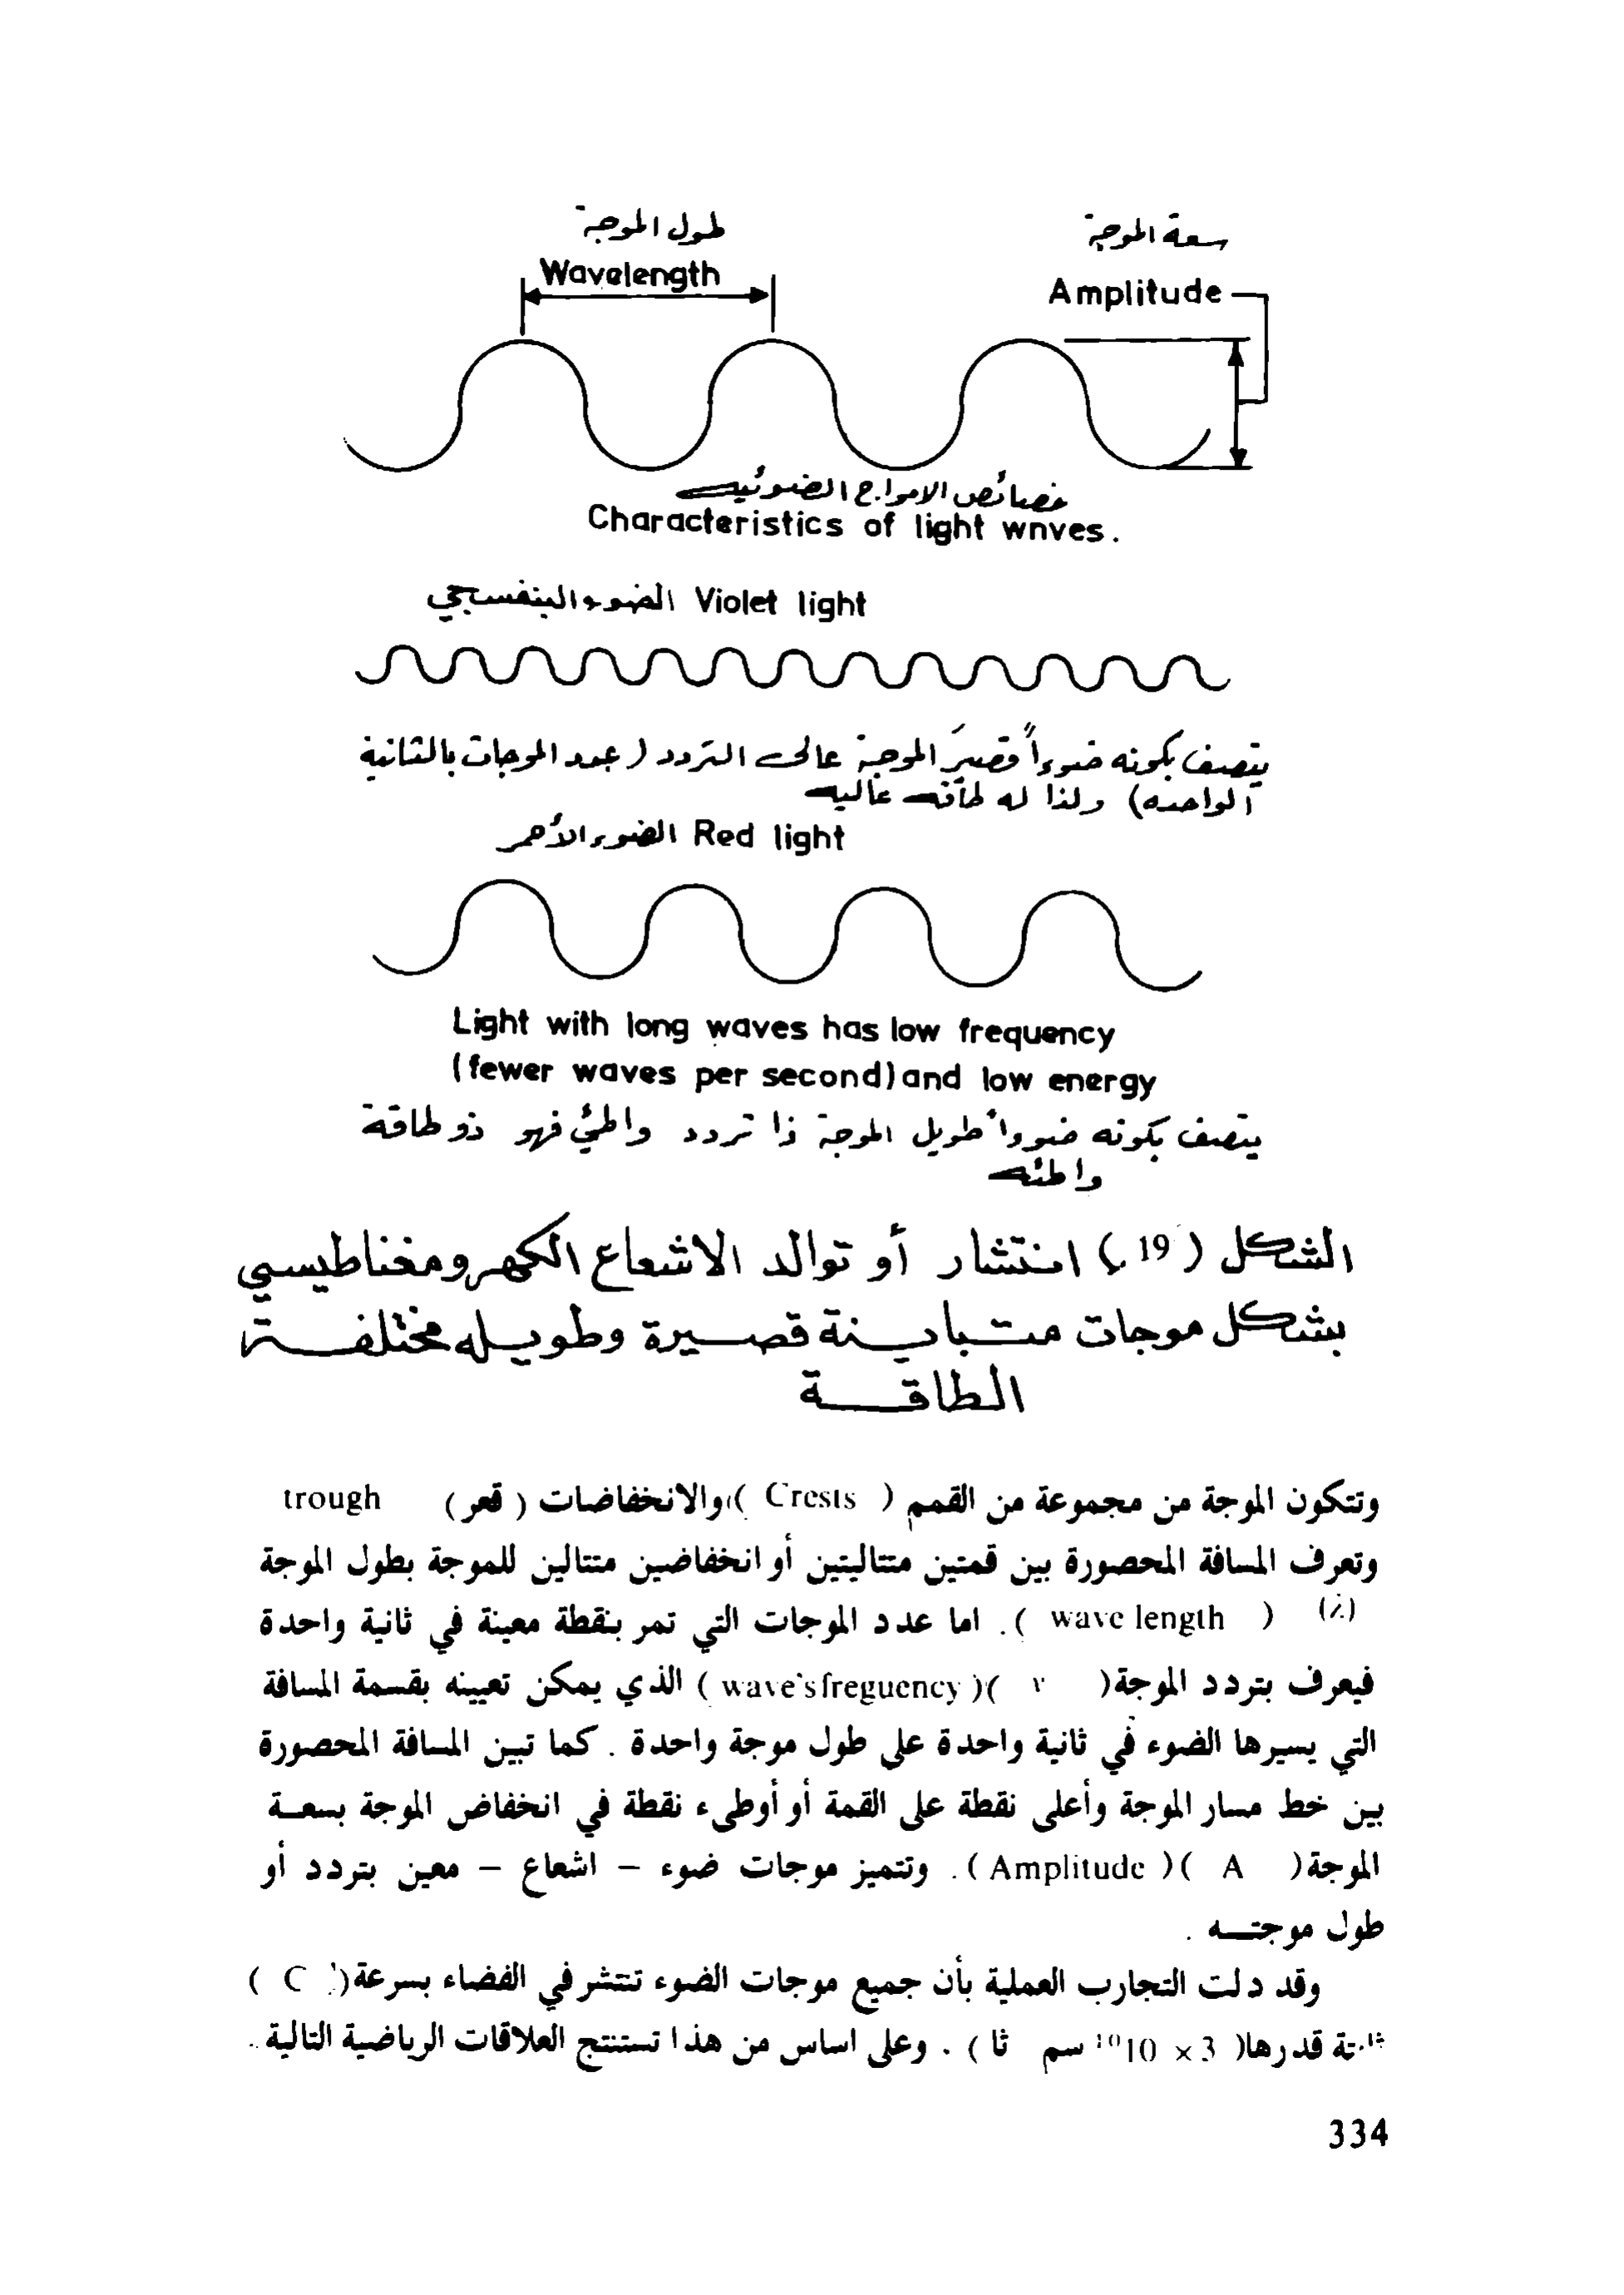 طول الموجة
سعة الموجة
Wavelength
Amplitude
خصائص الامواج الضوئيه
Characteristics of light wnves.
الضوء البنفسجي Violet light
يتصف بكونه ضوءاً قصير الموجة عالي التردد ( عدد الموجات بالثانية
الواحده) ولذا له طاقه عاليه
الضوء الأحمر Red light
Light with long waves has low frequency
(fewer waves per second) and low energy
يتصف بكونه ضوءاً طويل الموجة ذا تردد واطئ فهو ذو طاقة
واطئه
الشكل ( 19 ) انتشار أو توالد الاشعاع الكهرومغناطيسي
بشكل موجات متباينة قصيرة وطويله مختلفة
الطاقة
وتتكون الموجة من مجموعة من القمم ( Crests ) والانخفاضات ( قعر ) trough
وتعرف المسافة المحصورة بين قمتين متتاليتين أو انخفاضين متتالين للموجة بطول الموجة
(λ) ( wave length ) . اما عدد الموجات التي تمر بنقطة معينة في ثانية واحدة
فيعرف بتردد الموجة ( ν ) ( wave's freguency ) الذي يمكن تعيينه بقسمة المسافة
التي يسيرها الضوء في ثانية واحدة على طول موجة واحدة . كما تبين المسافة المحصورة
بين خط مسار الموجة وأعلى نقطة على القمة أو أوطىء نقطة في انخفاض الموجة بسعة
الموجة ( A ) ( Amplitude ) . وتتميز موجات ضوء – اشعاع – معين بتردد أو
طول موجته .
وقد دلت التجارب العملية بأن جميع موجات الضوء تنتشر في الفضاء بسرعة ( C )
ثابتة قدرها ( 3 × 10¹⁰ سم ثا ) . وعلى اساس من هذا تستنتج العلاقات الرياضية التالية .
334